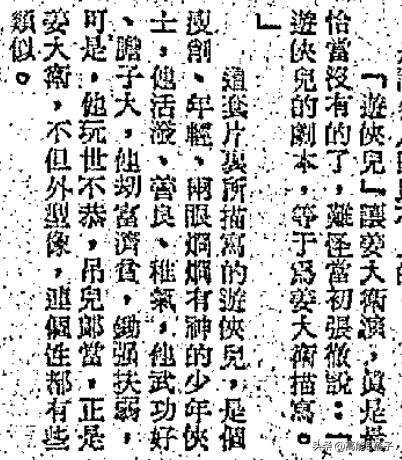 『遊俠兒』讓姜大衛演，眞是最
恰當沒有的了，難怪當初張徹說：『
遊俠兒的劇本，等于爲姜大衛描寫。
』
這套片裏所描寫的遊俠兒，是個
瘦削、年輕、兩眼烱烱有神的少年俠
士，他活潑、善良、稚氣，他武功好
、膽子大，他刧富濟貧，鋤强扶弱，
可是，他玩世不恭，吊兒郎當，正是
姜大衛，不但外型像，連個性都有些
類似。
头条 @高